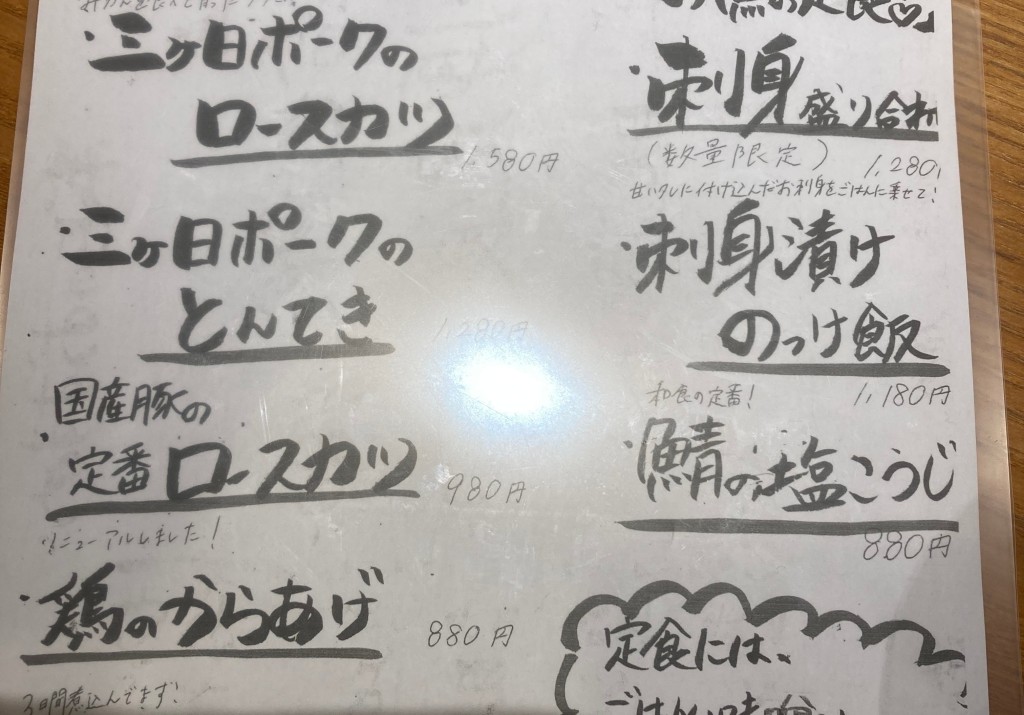 ・三ヶ日ポークの
ロースカツ
1,580円
・三ヶ日ポークの
とんてき
1,280円
国産豚の
・定番ロースカツ
980円
リニューアルしました!
・鶏のからあげ
880円
3日間煮込んでます!
の定食♡」
・刺身盛り合わ
(数量限定)
1,280
甘いタレに付け込んだお刺身をごはんに乗せて!
・刺身漬け
のっけ飯
1,180円
和食の定番!
・鯖の塩こうじ
880円
定食には、
ごはん